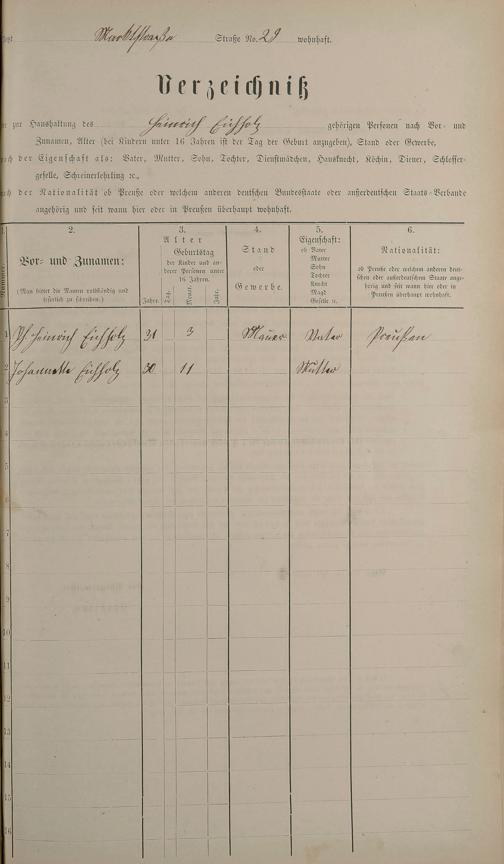 Marktstraße Straße No. 29 wohnhaft.
Verzeichniß
zur Haushaltung des Heinrich Eichholz gehörigen Personen nach Vor- und
Zunamen, Alter (bei Kindern unter 16 Jahren ist der Tag der Geburt anzugeben), Stand oder Gewerbe,
nach der Eigenschaft als: Vater, Mutter, Sohn, Tochter, Dienstmädchen, Hausknecht, Köchin, Diener, Schlosser-
geselle, Schreinerlehrling ꝛc.,
nach der Nationalität ob Preuße oder welchem anderen deutschen Bundesstaate oder außerdeutschen Staats-Verbande
angehörig und seit wann hier oder in Preußen überhaupt wohnhaft.
1. 2. 3. 4. 5. 6.
Nummer.
Vor- und Zunamen:
(Man bittet die Namen vollständig und
leserlich zu schreiben.)
Alter
Geburtstag
der Kinder und an-
derer Personen unter
16 Jahren.
Jahre. Tag. Monat. Jahr.
Stand
oder
Gewerbe.
Eigenschaft:
ob Vater
Mutter
Sohn
Tochter
Knecht
Magd
Geselle ꝛc.
Nationalität:
ob Preuße oder welchem anderen deut-
schen oder außerdeutschen Staate ange-
hörig und seit wann hier oder in
Preußen überhaupt wohnhaft.
1 Ph. Heinrich Eichholz 31 3 Maurer Vater Preußen
2 Johannette Eichholz 30 11 Mutter
3
4
5
6
7
8
9
10
11
12
13
14
15
16